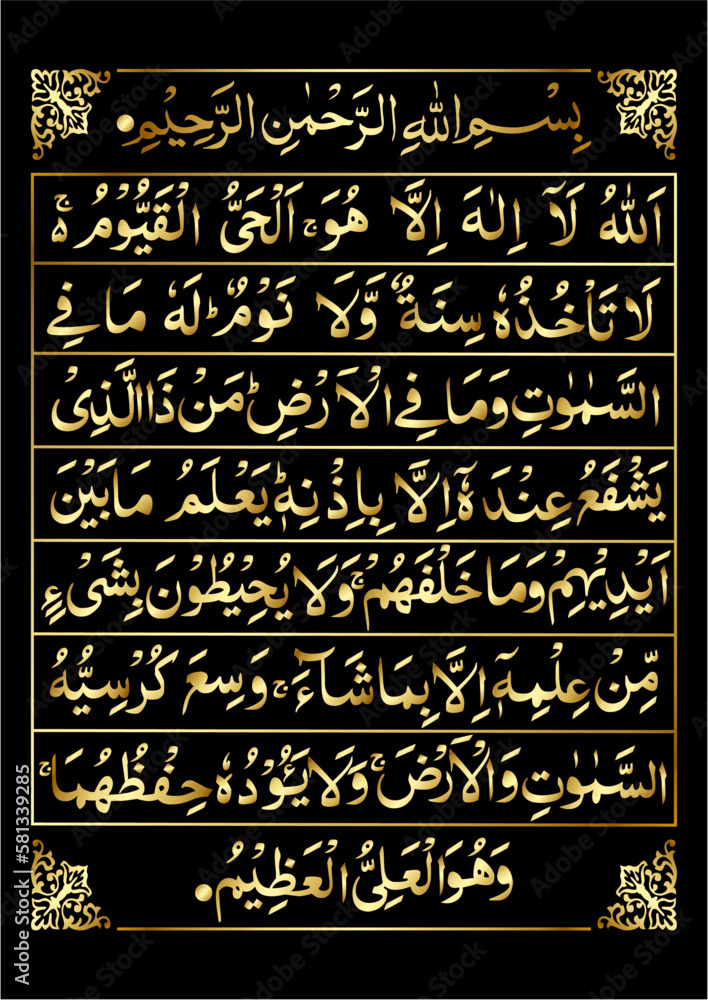 بِسْمِ اللهِ الرَّحْمٰنِ الرَّحِيْمِ
اَللهُ لَآ اِلٰهَ اِلَّا هُوَ ۚ اَلْحَىُّ الْقَيُّوْمُ ۚ ۵
لَا تَاْخُذُهٗ سِنَةٌ وَّلَا نَوْمٌ ؕ لَهٗ مَا فِي
السَّمٰوٰتِ وَمَا فِي الْاَرْضِ ؕ مَنْ ذَا الَّذِىْ
يَشْفَعُ عِنْدَهٗٓ اِلَّا بِاِذْنِهٖ ؕ يَعْلَمُ مَا بَيْنَ
اَيْدِيْهِمْ وَمَا خَلْفَهُمْ ۚ وَلَا يُحِيْطُوْنَ بِشَىْءٍ
مِّنْ عِلْمِهٖٓ اِلَّا بِمَا شَآءَ ۚ وَسِعَ كُرْسِيُّهُ
السَّمٰوٰتِ وَالْاَرْضَ ۚ وَلَا يَـُٔوْدُهٗ حِفْظُهُمَا ۚ
وَهُوَ الْعَلِىُّ الْعَظِيْمُ
Adobe Stock | #581339285